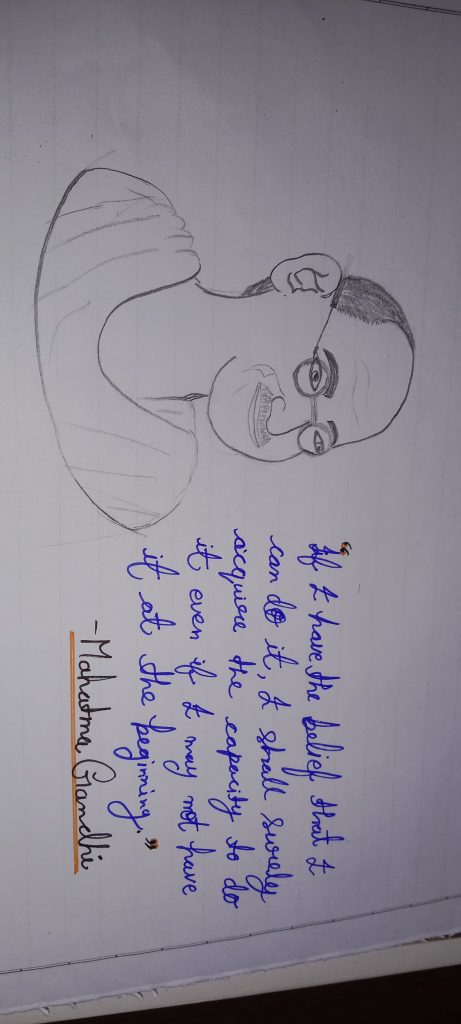 "If I have the belief that I
can do it, I shall surely
acquire the capacity to do
it even if I may not have
it at the beginning."
-Mahatma Gandhi